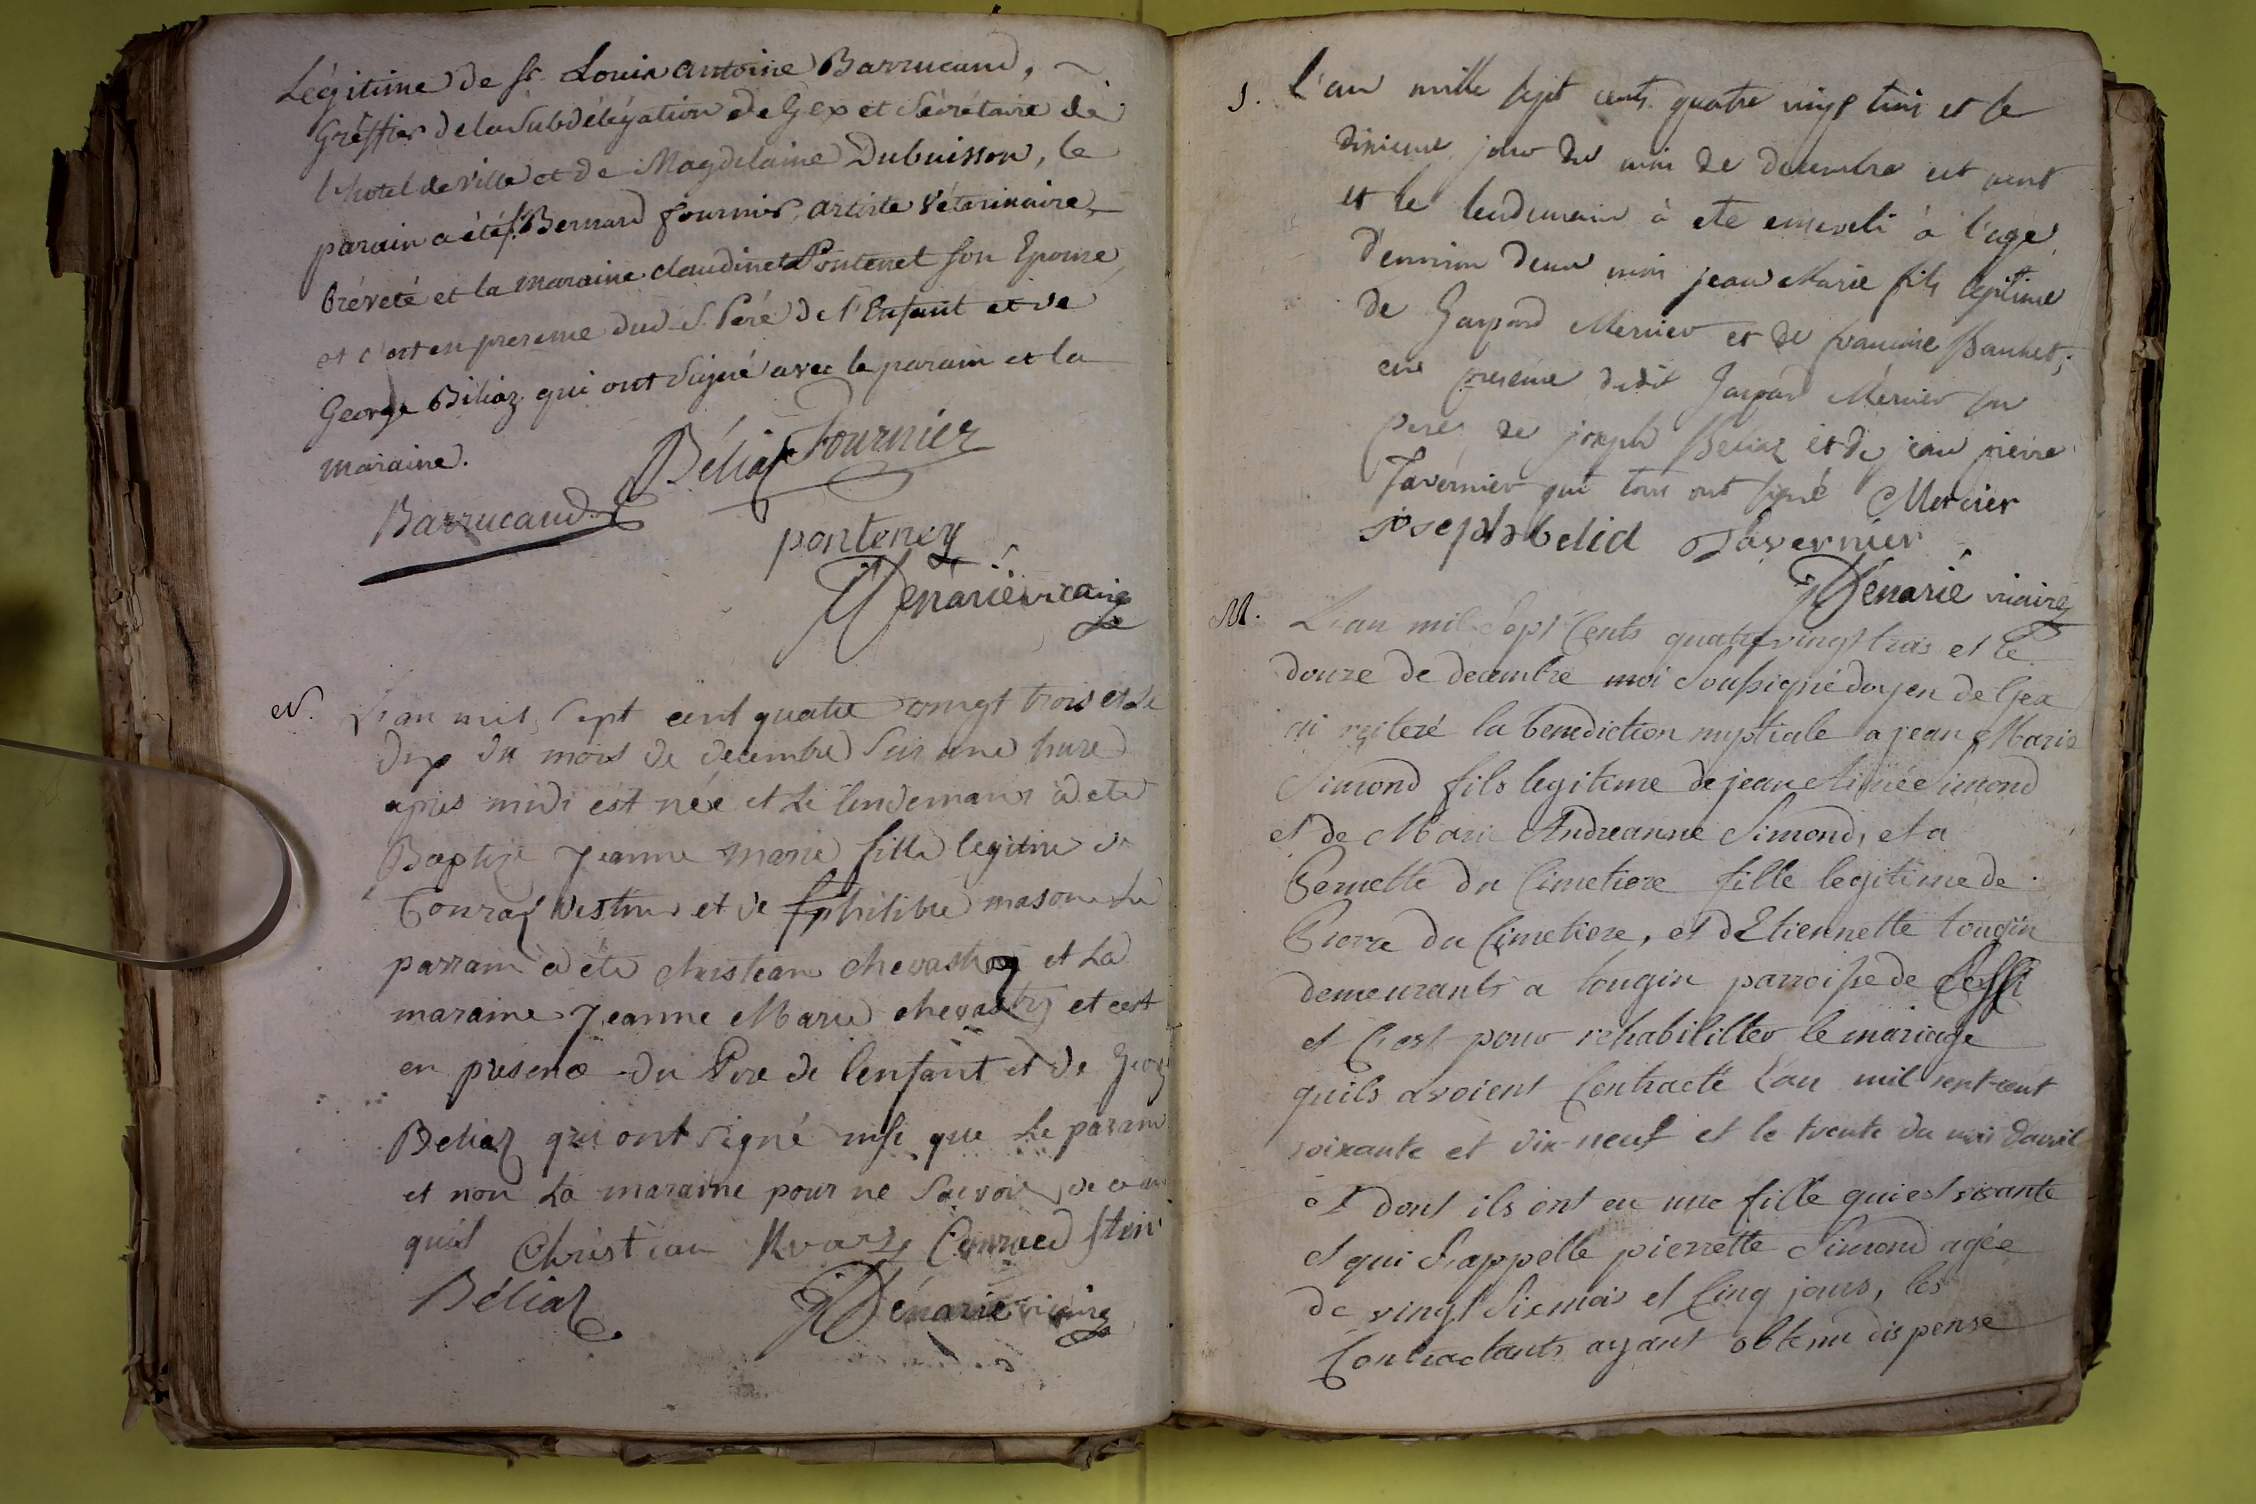 Légitime de Sr. Louis antoine Barrucand,
Gréffier de la Subdélégation de Gex et Sécrétaire de
l'hotel de ville et de Magdelaine Dubuisson, le
parain a été Sr. Bernard fournier, artiste Vétérinaire
bréveté et la maraine claudine Pontenet son Epouse,
et c'est en presence dud. S. Péré de l'Enfant et de
George Béliaz qui ont Signé avec le parain et la
maraine.
Béliaz Fournier
Barrucand
ponteney
Dénarié vicaire
N. L'an mil Sept cent quatre vingt trois et Le
dix du mois de decembre Sur une hure
apres midi est née et Le lendemain a eté
Baptize Jeanne marie fille legitime de
Conraz et de philibre mason Le
parrain a eté christian chevastey et La
maraine Jeanne Marie chevastey et cest
en presence du Pere de lenfant et de Georg
Beliaz qui ont signé insi que Le parain
et non La maraine pour ne Savoir de ce
quis Christian Conraed
Béliaz Dénarié vicaire
S. L'an mille sept cents quatre vingt trois et le
dixieme jour du mois de decembre est mort
et le lendemain à eté enseveli à l'age
d'environ deux mois jean Marie fils legitime
de Gaspard Mercier et de francoise Banket,
en presence dudit Gaspard Mércier son
pere de joseph Beliaz et de jean pierre
Tavérnier qui tous ont signé Mercier
joseph belia Tavernier
Dénarié vicaire
M. L'an mil Sept Cents quatre vingt trois et le
douze de decembre moi Soussigné doyen de Gex
ai reiteré la benediction nuptiale a jean Marie
Simond fils legitime de jean Aimée Simond
et de Marie Andreanne Simond, et a
Pernette du Cimetiere fille legitime de
Pierre du Cimetiere, et d'Etiennette tougin
demeurants a tougin parroisse de Cessi
et C'est pour rehabilitter le mariage
quils avoient Contracté l'an mil sept cent
soixante et dix-neuf et le trente du mois d'avril
et dont ils ont eu une fille qui est vivante
et qui S'appelle pierrette Simond agée
de vingt Six mois et Cinq jours, les
Contractants ayant obtenu dispense